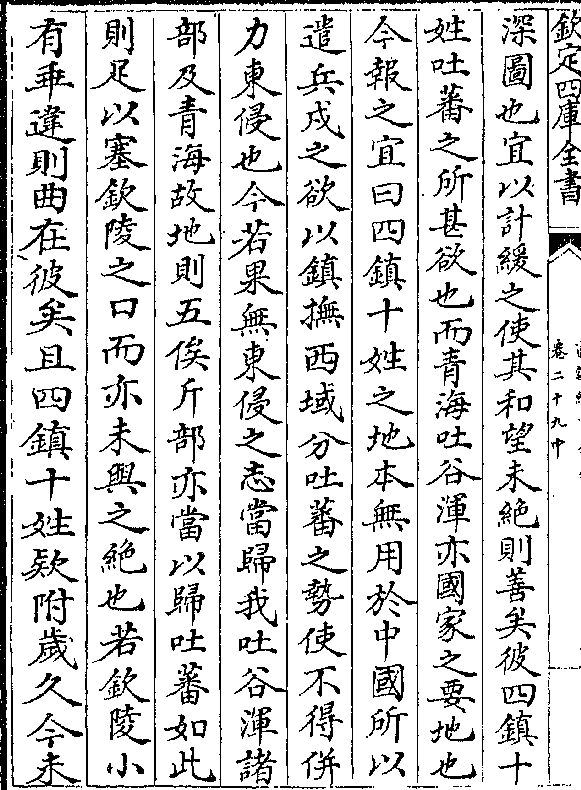 欽定四庫全書
卷二十九中
深圖也宜以計緩之使其和望未絶則善矣彼四鎮十
姓吐蕃之所甚欲也而青海吐谷渾亦國家之要地也
今報之宜曰四鎮十姓之地本無用於中國所以
遣兵戍之欲以鎮撫西域分吐蕃之勢使不得併
力東侵也今若果無東侵之志當歸我吐谷渾諸
部及青海故地則五俟斤部亦當以歸吐蕃如此
則足以塞欽陵之口而亦未與之絶也若欽陵小
有乖違則曲在彼矣且四鎮十姓欵附歲久今未